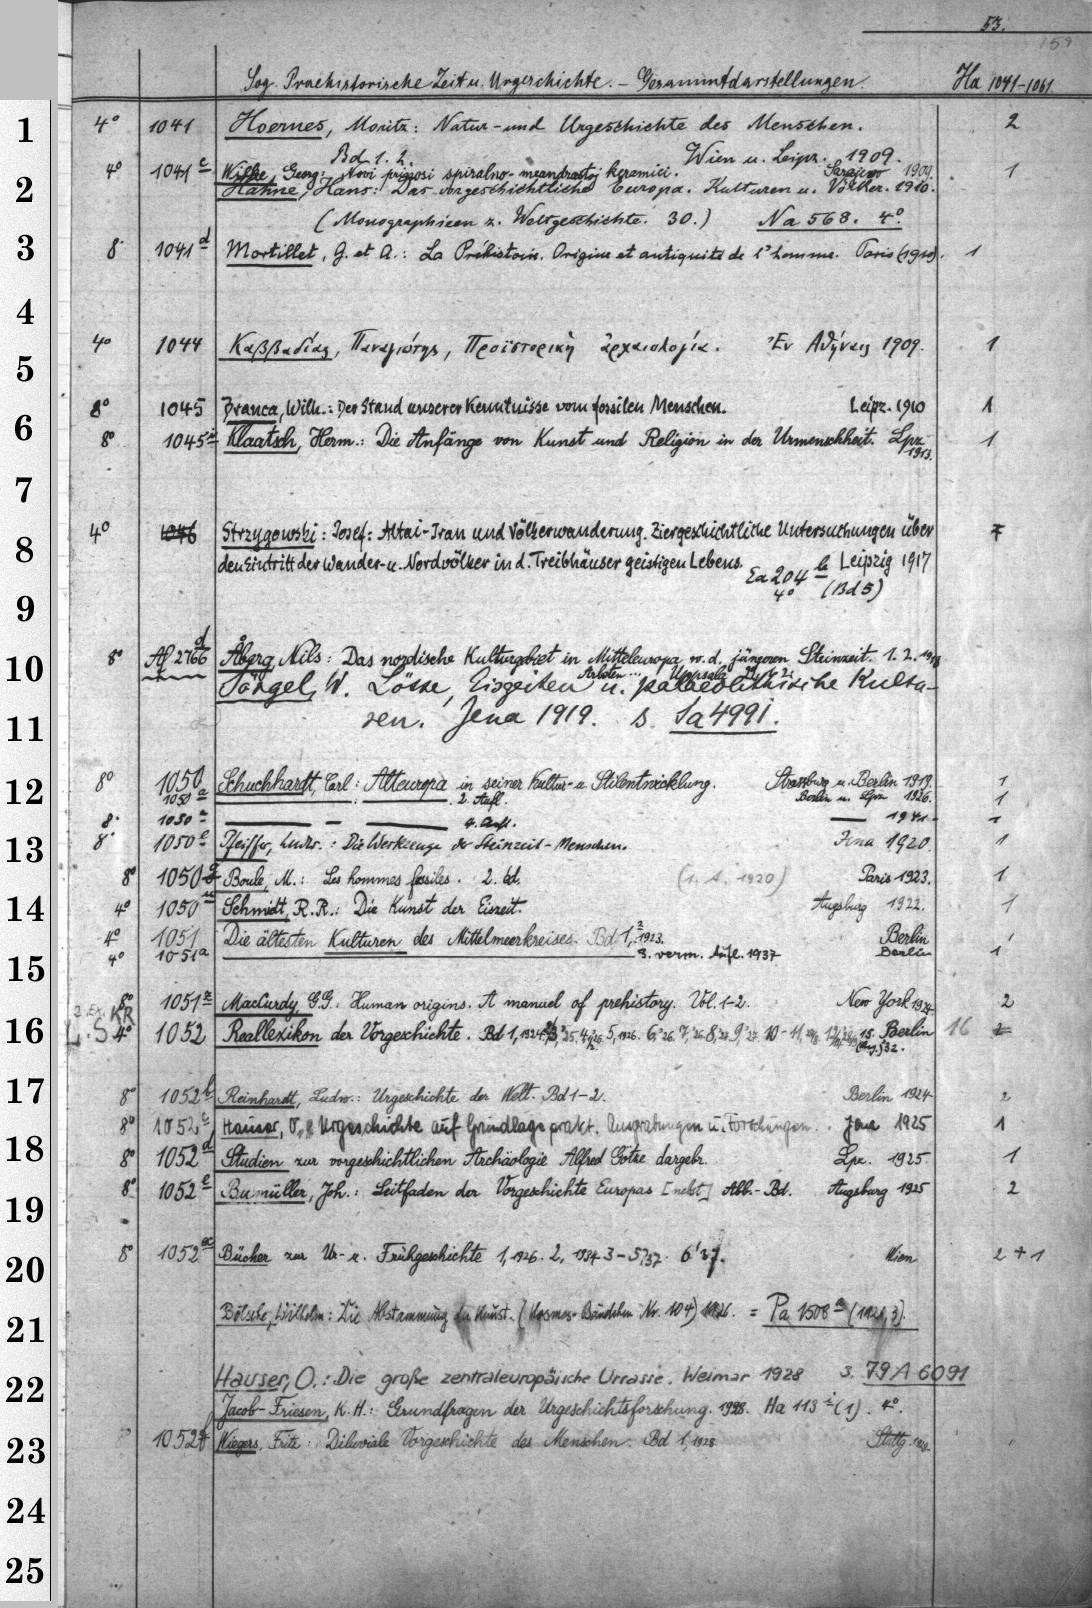 53.
159
Sog. Praehistorische Zeit u. Urgeschichte. – Gesammtdarstellungen. Ha 1041-1061
1 4° 1041 Hoernes, Moritz: Natur- und Urgeschichte des Menschen. 2
Bd 1. 2. Wien u. Leipz. 1909.
4° 1041 c Wilke, Georg: Novi prinosi spiralno-meandrastoj keramici. Sarajevo 1909. 1
2 Hahne, Hans: Das vorgeschichtliche Europa. Kulturen u. Völker. 1910.
(Monographieen z. Weltgeschichte. 30.) Na 568. 4°
3 8° 1041 d Mortillet, G. et A.: La Préhistoire. Origine et antiquité de l'homme. Paris (1910). 1
4
5 4° 1044 Καββαδίας, Παναγιώτης, Προϊστορικὴ ἀρχαιολογία. Ἐν Ἀθήναις 1909. 1
8° 1045 Branca, Wilh.: Der Stand unserer Kenntnisse vom fossilen Menschen. Leipz. 1910 1
6 8° 1045 Klaatsch, Herm.: Die Anfänge von Kunst und Religion in der Urmenschheit. Lpz 1913. 1
7
8 4° 1046 Strzygowski: Josef: Altai-Iran und Völkerwanderung. Ziergeschichtliche Untersuchungen über
den Eintritt der Wander- u. Nordvölker in d. Treibhäuser geistigen Lebens. Leipzig 1917
Ea 204 b
4° (Bd 5)
9
10 8° Af 2766 d Åberg, Nils: Das nordische Kulturgebiet in Mitteleuropa w. d. jüngeren Steinzeit. 1. 2. 1918
Soergel, W. Lösse, Eiszeiten u. palaeolithische Kultu-
11 ren. Jena 1919. s Sa 4991.
12 8° 1050 Schuchhardt, Carl: Alteuropa in seiner Kultur- u. Stilentwicklung. Strassburg u. Berlin 1919. 1
1050 a 2. Aufl. Berlin u. Lpz 1926. 1
8° 1050 — — — 4. Aufl. — 1941. 1
13 8° 1050 e Pfeiffer, Ludw.: Die Werkzeuge des Steinzeit-Menschen. Jena 1920. 1
8° 1050 g Boule, M.: Les hommes fossiles. 2. éd. (1. A. 1920) Paris 1923. 1
14 4° 1050 Schmidt, R. R.: Die Kunst der Eiszeit. Augsburg 1922. 1
4° 1051 Die ältesten Kulturen des Mittelmeerkreises. Bd 1, 1923. Berlin 1
15 4° 1051 a 3. verm. Aufl. 1937 Berlin 1
8° 1051 MacCurdy, G. G.: Human origins. A manuel of prehistory. Vol. 1-2. New York 1924 2
KR
16 4° 1052 Reallexikon der Vorgeschichte. Bd 1, 1924 5, 1926. 10-11, 15. Berlin 16
17 8° 1052 b Reinhardt, Ludw.: Urgeschichte der Welt. Bd 1-2. Berlin 1924 2
8° 1052 c Hauser, O., Urgeschichte auf Grundlage prakt. Ausgrabungen u. Forschungen. Jena 1925 1
18 8° 1052 d Studien zur vorgeschichtlichen Archäologie Alfred Götze dargebr. Lpz. 1925. 1
8° 1052 e Bumüller, Joh.: Leitfaden der Vorgeschichte Europas [nebst] Abb.-Bd. Augsburg 1925 2
19
20 8° 1052 ec Bücher zur Ur- u. Frühgeschichte 1, 1926. 2, 1934 3-5, '37. 6 '37. Wien 2 + 1
21 Bölsche, Wilhelm: Die Abstammung der Kunst. (Kosmos-Bändchen Nr. 104) 1926. = Pa 1508 a (1926, 3).
22 Hauser, O.: Die große zentraleuropäische Urrasse. Weimar 1928 s. 79 A 6091
Jacob-Friesen, K. H.: Grundfragen der Urgeschichtsforschung. 1928. Ha 113 i (1). 4°.
23 8° 1052 f Wiegers, Fritz: Diluviale Vorgeschichte des Menschen. Bd 1, 1928 Stuttg. 1928
24
25